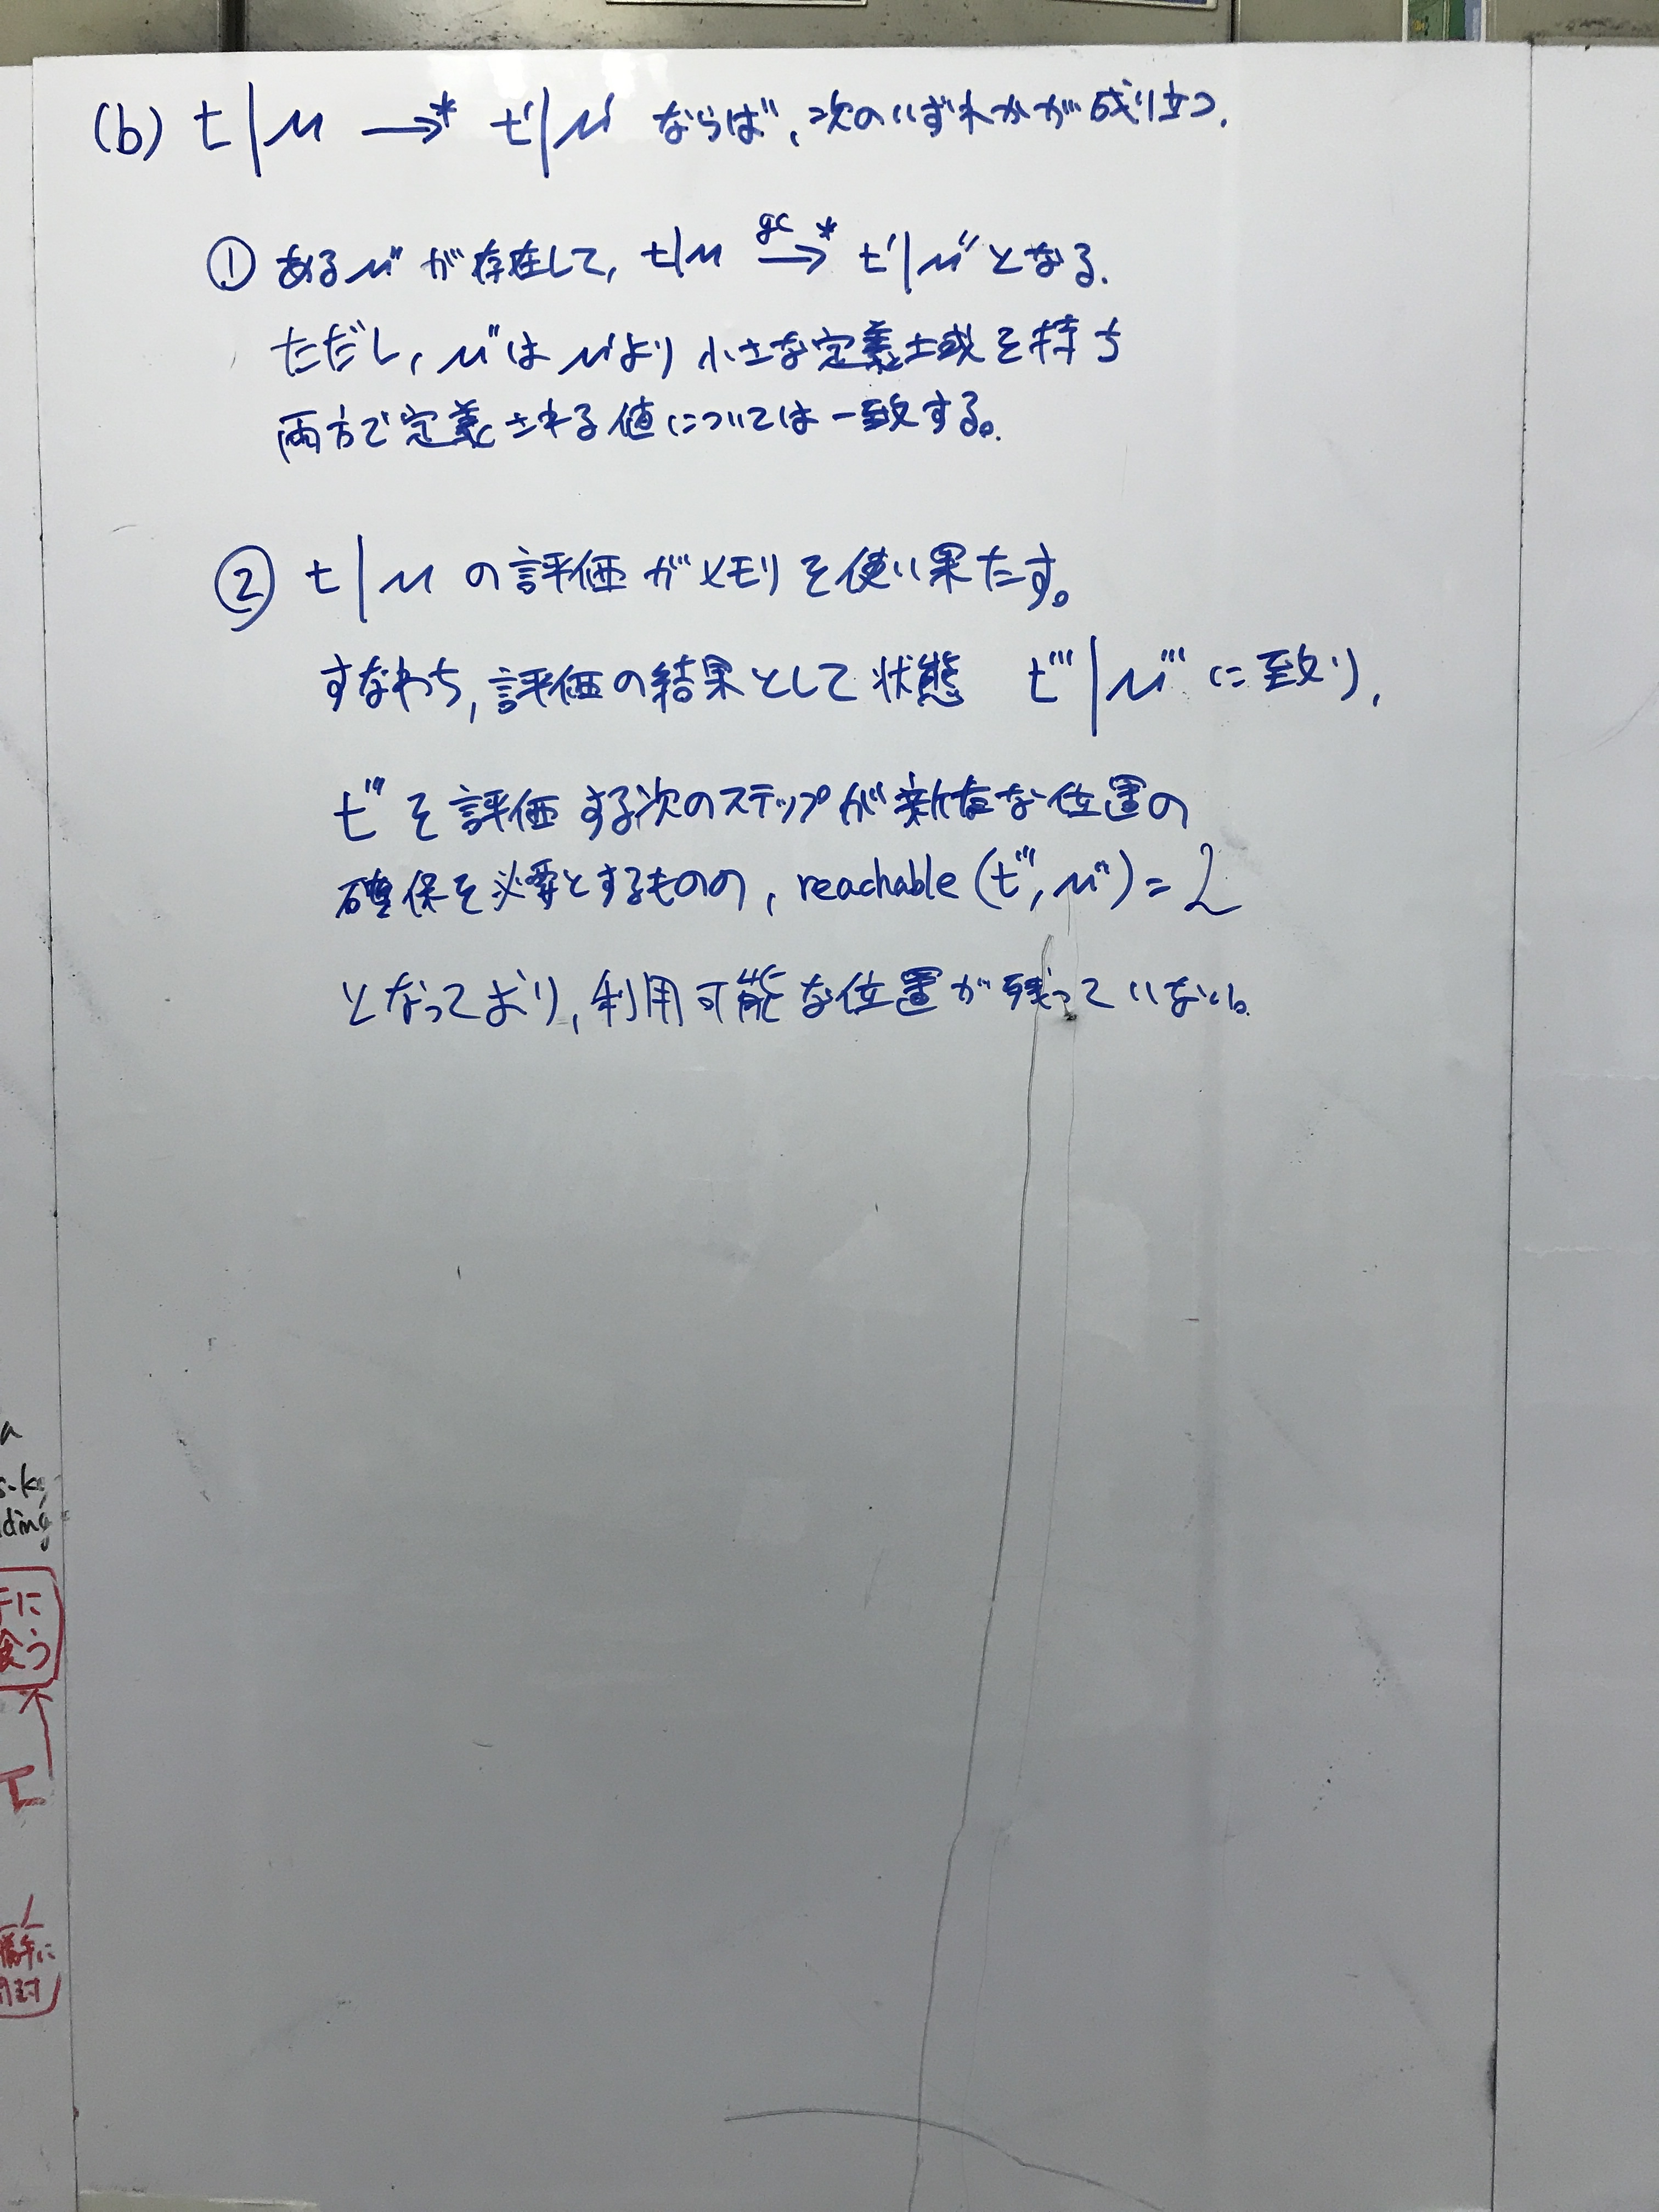 (b) t|μ →* t'|μ' ならば、次のいずれかが成り立つ.
① あるμ''が存在して, t|μ gc→* t'|μ''となる.
ただし, μ''はμ'より小さな定義域を持ち
両方で定義される値については一致する。
② t|μ の評価がメモリを使い果たす。
すなわち, 評価の結果として状態 t'''|μ''' に致り,
t'''を評価する次のステップが新たな位置の
確保を必要とするものの, reachable (t''', μ''') = L
となっており, 利用可能な位置が残っていない。
a
s-k,
ding
手に
会う
I
勝手に
開封